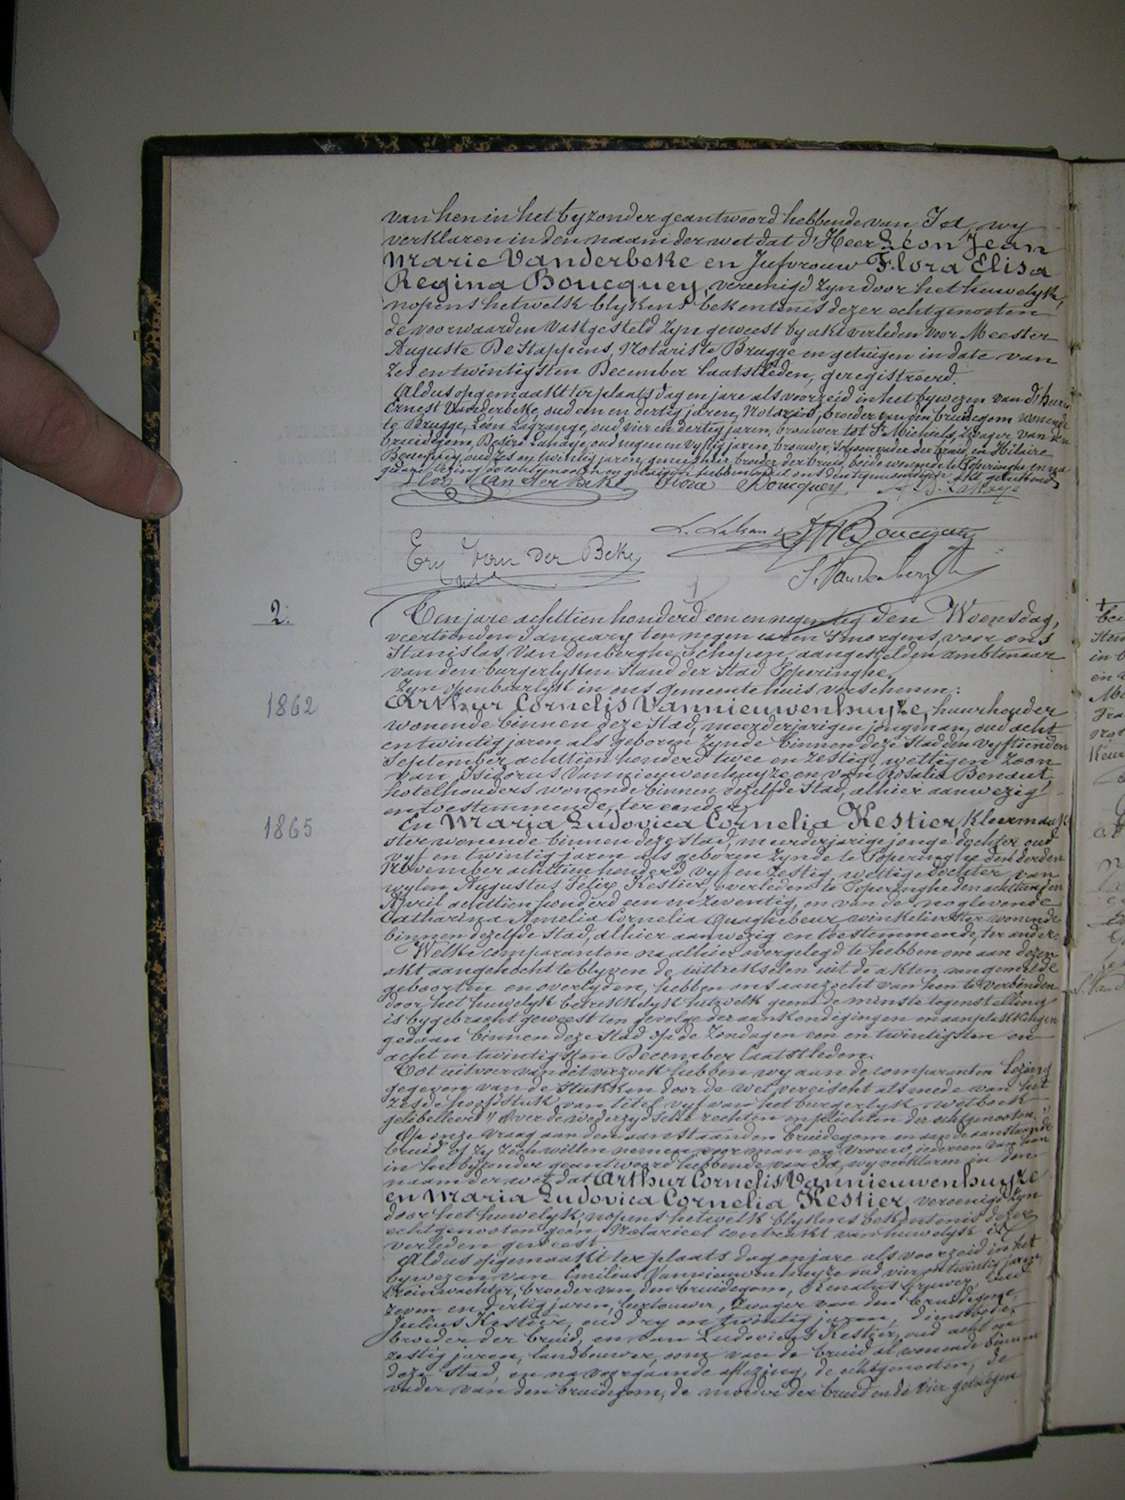 van hen in het byzonder geantwoord hebbende van Ja, wy
verklaren in den naam der wet dat d'Heer Léon Jean
Marie Vanderbeke en Jufvrouw Flora Elisa
Regina Boucquey, vereenigd zyn door het huwelyk,
nopens hetwelk blykens bekentenis dezer echtgenooten
de voorwaarden vastgesteld zyn geweest by akt verleden voor Meester
Auguste De Stappens, Notaris te Brugge en getuigen in date van
zes en twintigsten December laatstleden, geregistreerd.
Aldus opgemaakt ter plaats dag en jare als voorzeid in het bywezen van d'heeren
Ernest Vanderbeke, oud een en dertig jaren, Notaris, broeder van den bruidegom wonende
te Brugge, Léon Lagrange, oud vier en dertig jaren, brouwer tot St Michiels, zwager van den
bruidegom, Desiré Lahaye, oud negen en vyftig jaren, brouwer, der bruid, en Hilaire
Boucquey, oud zes en twintig jaren, broeder der bruid, beide wonende te Poperinghe, en na
gedane lezing de echtgenooten en getuigen hebben met ons dit akt geteekend
Léon Van der Beke Flora Boucquey
H Boucquey
Ern Van der Beke
S. Vandenberghe
2.
Ten jare achttien honderd een en negentig den Woensdag,
veertienden January ten negen uren 's morgens, voor ons
Stanislas Vandenberghe, Schepen, aangestelden ambtenaar
van den burgerlyken stand der Stad Poperinghe,
Zyn openbaarlyk in ons gemeentehuis verschenen:
1862
Arthur Cornelis Vannieuwenhuyze, huurhouder
wonende binnen deze Stad, meerderjarigen jongman, oud acht
en twintig jaren als geboren zynde binnen deze Stad den vyftienden
September achttien honderd twee en zestig, wettigen zoon
van Isidorus Vannieuwenhuyze en van Rosalia Benaut,
hotelhouders wonende binnen dezelfde Stad, alhier aanwezig
en toestemmende, ter eendere
1865
En Maria Ludovica Cornelia Kestier, kleermaak-
ster wonende binnen deze Stad, meerderjarige jonge dochter oud
vyf en twintig jaren als geboren zynde te Poperinghe den derden
November achttien honderd vyf en zestig, wettige dochter van
wylen Augustus Felix Kestier, overleden te Poperinghe den achttienden
April achttien honderd een en zeventig, en van de nog levende
Catharina Amelia Cornelia Quaghebeur, winkelierster wonende
binnen dezelfde Stad, alhier aanwezig en toestemmende, ter andere.
Welke comparanten na alhier overgelegd te hebben om aan dezen
akt aangehecht te blyven de uittrekselen uit de akten van gemelde
geboorten en overlyden, hebben ons aanzocht van hen te verbinden
door het huwelyk betrekkelyk hetwelk geene de minste tegenstelling
is bygebracht geweest ten gevolge der aankondigingen en aanplakkingen
gedaan binnen deze Stad op de Zondagen een en twintigsten en
acht en twintigsten December laatstleden.
Tot uitvoer van dit verzoek hebben wy aan de comparanten lezing
gegeven van de stukken door de wet vereischt alsmede van het
zesde hoofdstuk van titel vyf van het burgerlyk wetboek
getiteleerd "Over de wederzydsche rechten en plichten der echtgenooten"
Op onze vraag aan den aanstaanden bruidegom en aan de aanstaande
bruid of zy zich willen nemen voor man en vrouw, iedereen van hen
in het byzonder geantwoord hebbende van Ja, wy verklaren in den
naam der wet dat Arthur Cornelis Vannieuwenhuyze
en Maria Ludovica Cornelia Kestier, vereenigd zyn
door het huwelyk, nopens hetwelk blykens bekentenis dezer
echtgenooten geen Notarieel contrakt van huwelyk is
verleden geweest.
Aldus opgemaakt ter plaats dag en jare als voorzeid in het
bywezen van Emilius Vannieuwenhuyze oud vier en twintig jaren
treinwachter, broeder van den bruidegom, Renatus Gruwez, oud
zeven en dertig jaren, zwager van den bruidegom,
Julius Kestier, oud dry en twintig jaren, dienstbode,
broeder der bruid, en van Ludovicus Kestier, oud acht en
zestig jaren, landbouwer, oom van de bruid al wonende binnen
deze Stad, en na voorgaande aflezing, de echtgenooten, de
vader van den bruidegom, de moeder der bruid en de vier getuigen